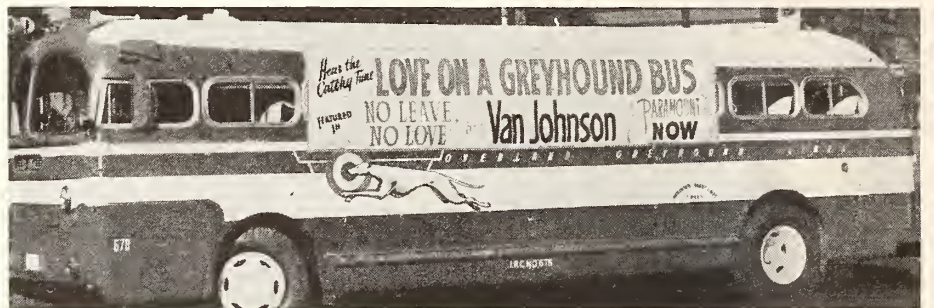 Hear the
Catchy Tune
LOVE ON A GREYHOUND BUS
FEATURED
IN
NO LEAVE,
NO LOVE
Van Johnson
PARAMOUNT
NOW
OVERLAND GREYHOUND LINES
678